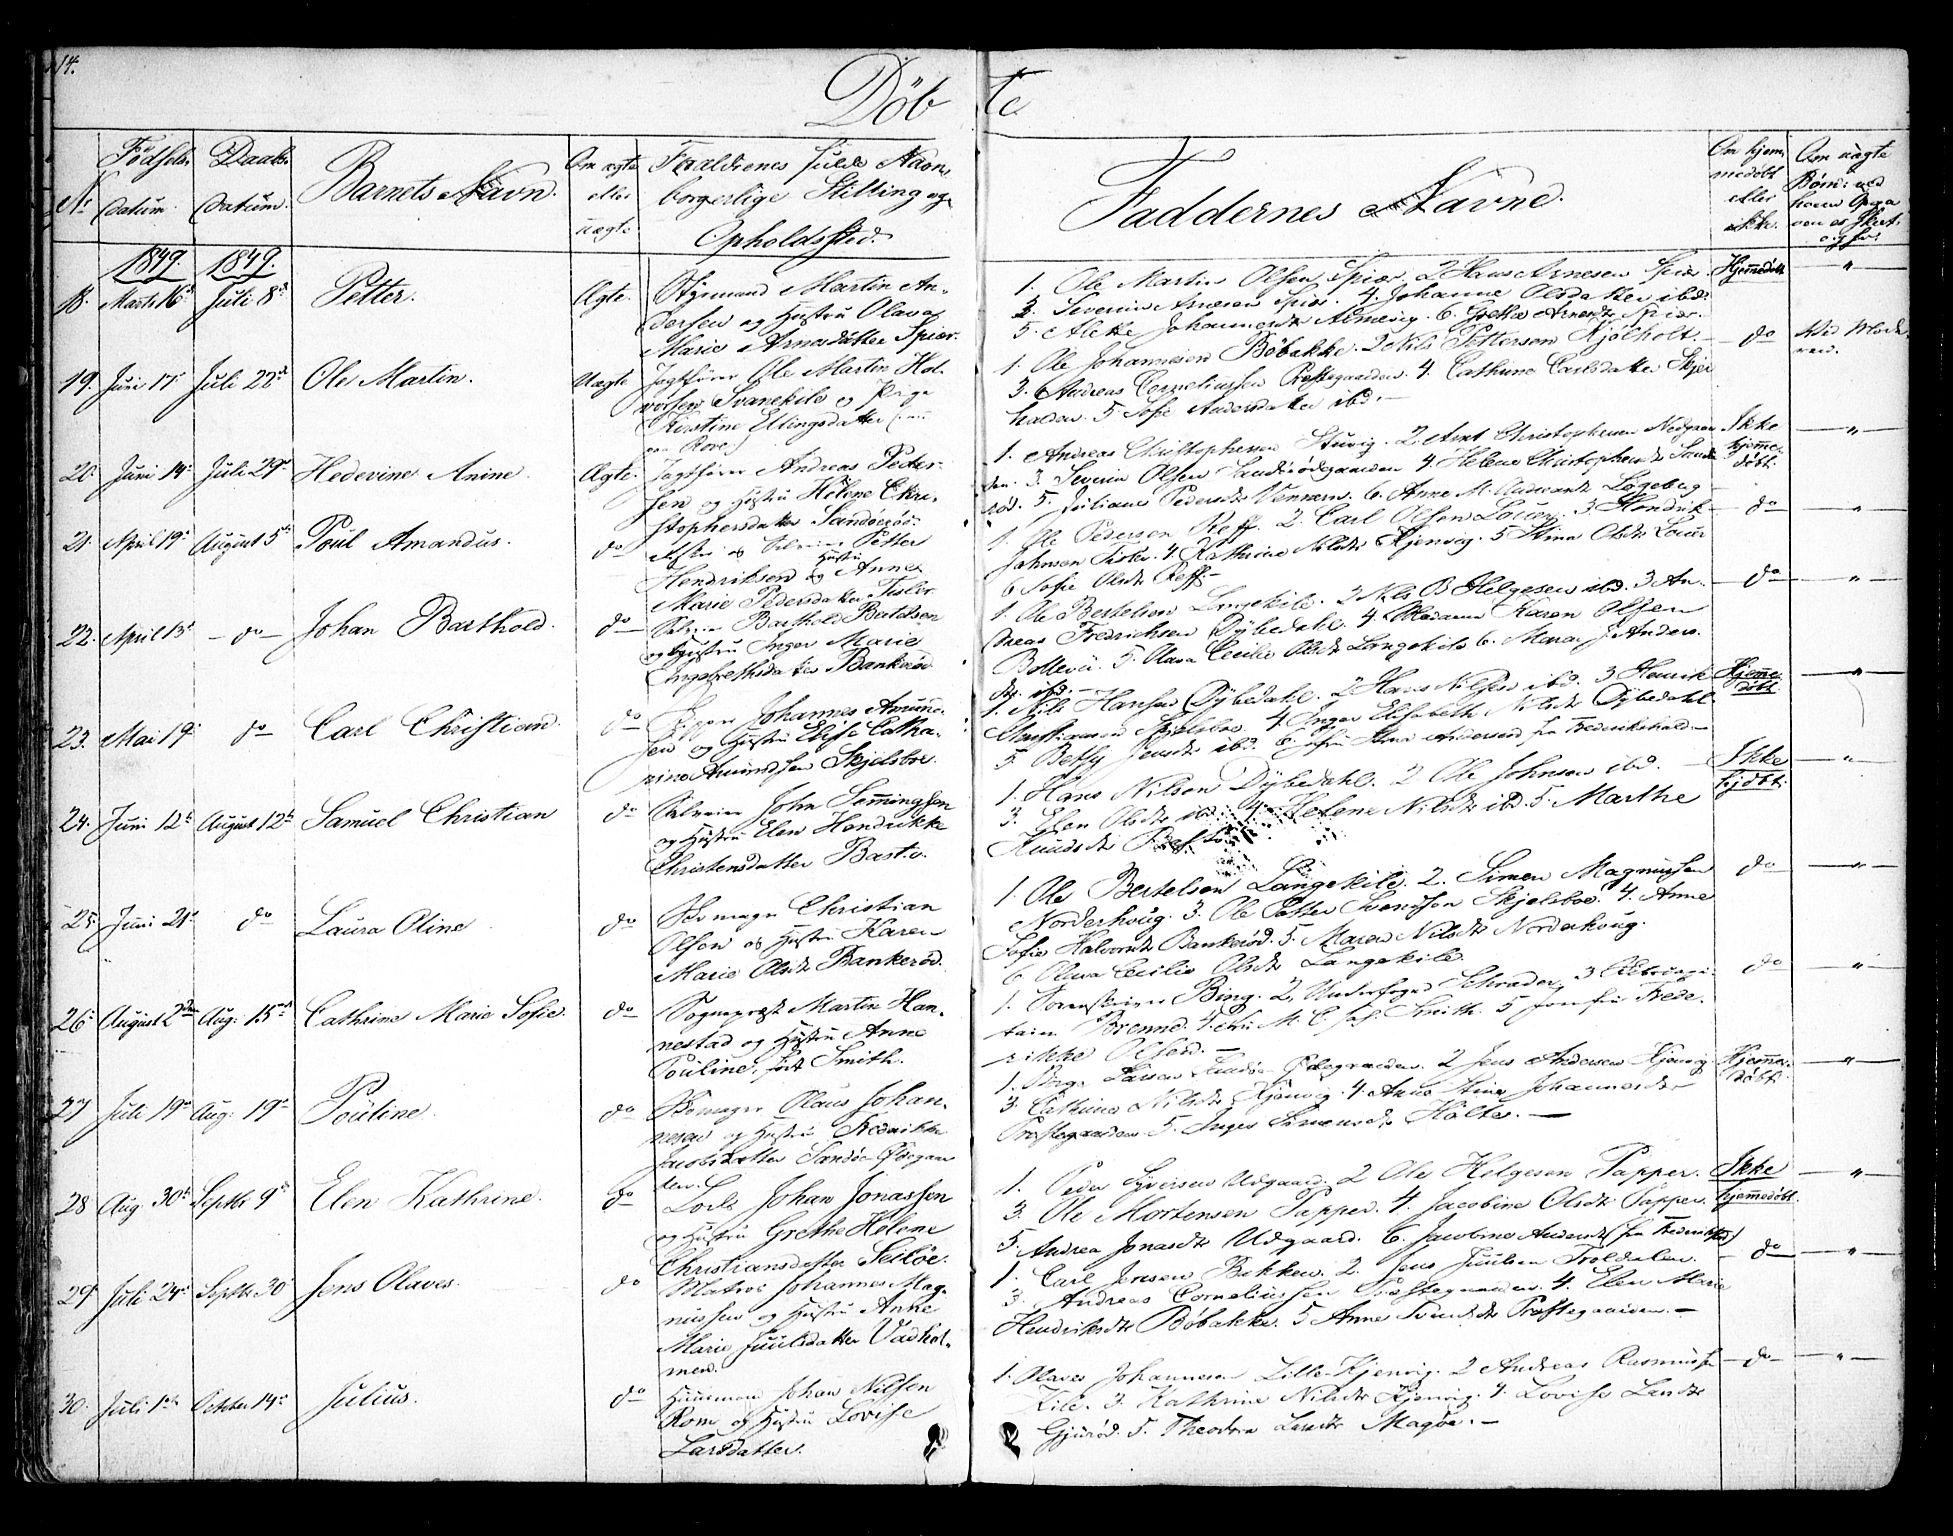 14.
Döbte
No
Födsels Datum.
Daabs Datum.
Barnets Navn.
Om ægte eller uægte
Forældrenes fulde Navn, borgerlige Stilling og Opholdssted.
Faddernes Navne.
Om hjemmedøbt eller ikke.
Om uægte
1849. 1849.
18. Marts 16d Juli 8d Petter. Ægte. Styrmand Martin An-
dersen og Hustru Olava
Marie Arnesdatter Spiær.
1. Ole Martin Olsen Spiær. 2 Hans Arnesen Spiær Hjemmedøbt "
3. Severin Arnesen Spiær. 4. Johanne Olsdatter ibd:
5. Johannesdtr 6. Grethe Arnesdtr Spiær.
19. Juni 17. Juli 22d Ole Martin. Uægte Jagtfører Ole Martin Hal-
vorsen Svanekile og Pige
Kirstine Ellingsdatter
1. Ole Johannesen Böbakke. 2 Nils Pettersen Kjölholt. do
3. Andreas Corneliussen Præstegaarden. 4. Cathrine Carlsdatter Skjær
halden. 5 Sofie Andersdatter ibd.
20. Juni 14. Juli 29d Hedevine Anine. Ægte. Jagtfører Andreas Peder-
sen og Hustru Helene Chri-
stophersdatter Sandöeröd.
1. Andreas Christophersen Stuvig. 2. Arnt Christophersen Nedgaar- Ikke hjemme-døbt. "
den. 3. Severin Olsen 4. Helene Christophersdtr Sand
röd. 5. Juliane Pedersdtr 6. Anne M.
21. April 19. August 5te Poul Amandus. do Petter
Hendriksen og Hustru Anne
Marie Pedersdatter Tisler
1. Ole Pedersen Reff. 2. Carl Olsen Löuer. 3 Hendrik do "
Johnsen Tisler. 4. Kathrine Nilsdtr Kjenvig. 5 Stina Olsdtr Löuer
6 Sofie Olsdtr Reff.
22. April 13. do Johan Barthold. do Selveier Barthold Bertelsen
og Hustru Inger Marie
Engebrethsdatter Bankeröd
1. Ole Bertelsen Langekile. 2 Nils B Helgesen ibd. 3 An- do "
dreas Fredrichsen Dybedahl. 4 Madame Karen Olsen
5. Olava Cecilie Olsdtr Langekile 6. Maren J. Anders-
dtr. ibd.
23. Mai 19. do Carl Christian. do Johannes Amund-
sen og Hustru Elise Catha-
rine Amundsen Skjelsboe.
1. Nils Hansen Dybedahl. 2 Hans Nilsen ibd. 3 Henrik Hjemme-døbt. "
Christiansen Skjelsboe. 4. Inger Elisabeth Nilsdtr Dybedahl.
5. Betsy Jensdtr ibd. 6. Andersen fra Frederikshald
24. Juni 12te August 12te Samuel Christian do Selveier John Semmingsen
og Hustru Elen Hendrikke
Christensdatter Bastö.
1. Hans Nilsen Dybedahl. 2 Ole Johnsen ibd. Ikke hjdöbt "
3. Elen Olsdtr ibd. 4. Helene Nilsdtr ibd. 5. Marthe
Knudsdtr
25. Juni 21. do Laura Oline do Skomager Christian
Olsen og Hustru Karen
Marie Olsdtr Bankeröd.
1. Ole Bertelsen Langekile. 2. Simen Magnussen do "
Norderhoug. 3. Ole Petter Svendsen Skjelsboe. 4. Anne
Sofie Halvorsdtr Bankeröd. 5. Maren Nilsdtr Norderhoug.
6 Olava Cecilie Olsdtr Langekile.
26. August 2den Aug: 15de Cathrine Marie Sofie. do Sognepræst Martin Han-
nestad og Hustru Anne
Pouline, födt Smith.
1. Sorenskriver Bing. 2, Underfoged Schrader, 3 do "
Brenne. 4. Fru M. C. Smith. 5 Jomfru Frede-
rikke Olsen.
27 Juli 19de Aug: 19de Pouline. do Skomager Olaus Johan-
nesen og Hustru Fredrikke
Jacobsdatter Sandöe Ödegaar-
den.
1. Larsen Sandöe Ödegaarden. 2 Jens Andersen Kjenvig Hjemme-döbt. "
3. Cathrine Nilsdtr Kjenvig. 4. Anne Stine Johannesdtr
Præstegaarden. 5. Inger Simensdtr Holte.
28 Aug. 30te Septbr 9de Elen Kathrine. do Lods Johan Jonassen
og Hustru Grethe Helene
Christiansdatter Seilöe.
1. Peder Syversen Udgaard. 2 Ole Helgesen Papper. Ikke hjemmedöbt. "
3. Ole Mortensen Papper. 4. Jacobine Olsdtr Papper.
5. Andrea Jonasdtr Udgaard. 6. Jacobine Andersdtr (fra Frederikstad)
29 Juli 24de Septbr 30 Jens Olaves. do Matros Johannes Mag-
nussen og Hustru Anne
Marie Juulsdatter Vadhol-
men.
1. Carl Jensen Bakken. 2. Jens Juulsen Troldalen. do "
3. Andreas Corneliussen Præstegaarden. 4. Elen Marie
Hendriksdtr Böbakke. 5 Anne Svendsdtr Præstegaarden.
30. Juli 1ste October 14de Julius. do Huusmand Johan Nilsen
Rom og Hustru Lovise
Larsdatter.
1. Olaves Johannesen Lille Kjenvig. 2 Andreas Rasmussen do "
Kile. 3. Kathrine Nilsdtr Kjenvig. 4. Lovise Larsdtr
Gjuröd. 5. Theodora Larsdtr Magöe.